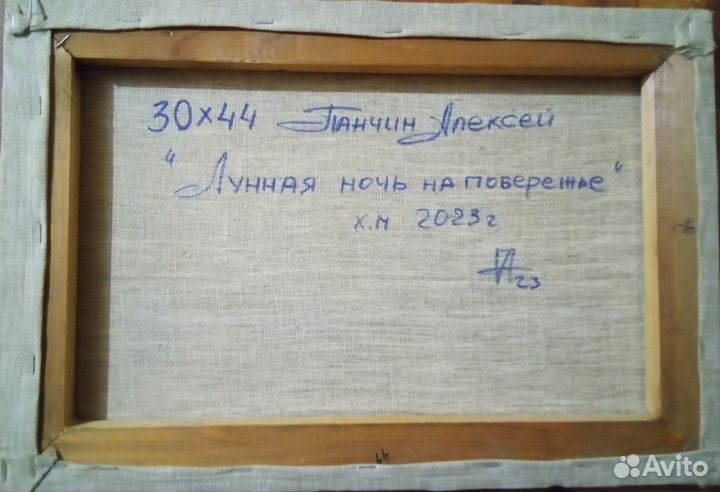 30×44 Панчин Алексей
"Лунная ночь на побережье"
х.м 2023г
П23
44
Avito